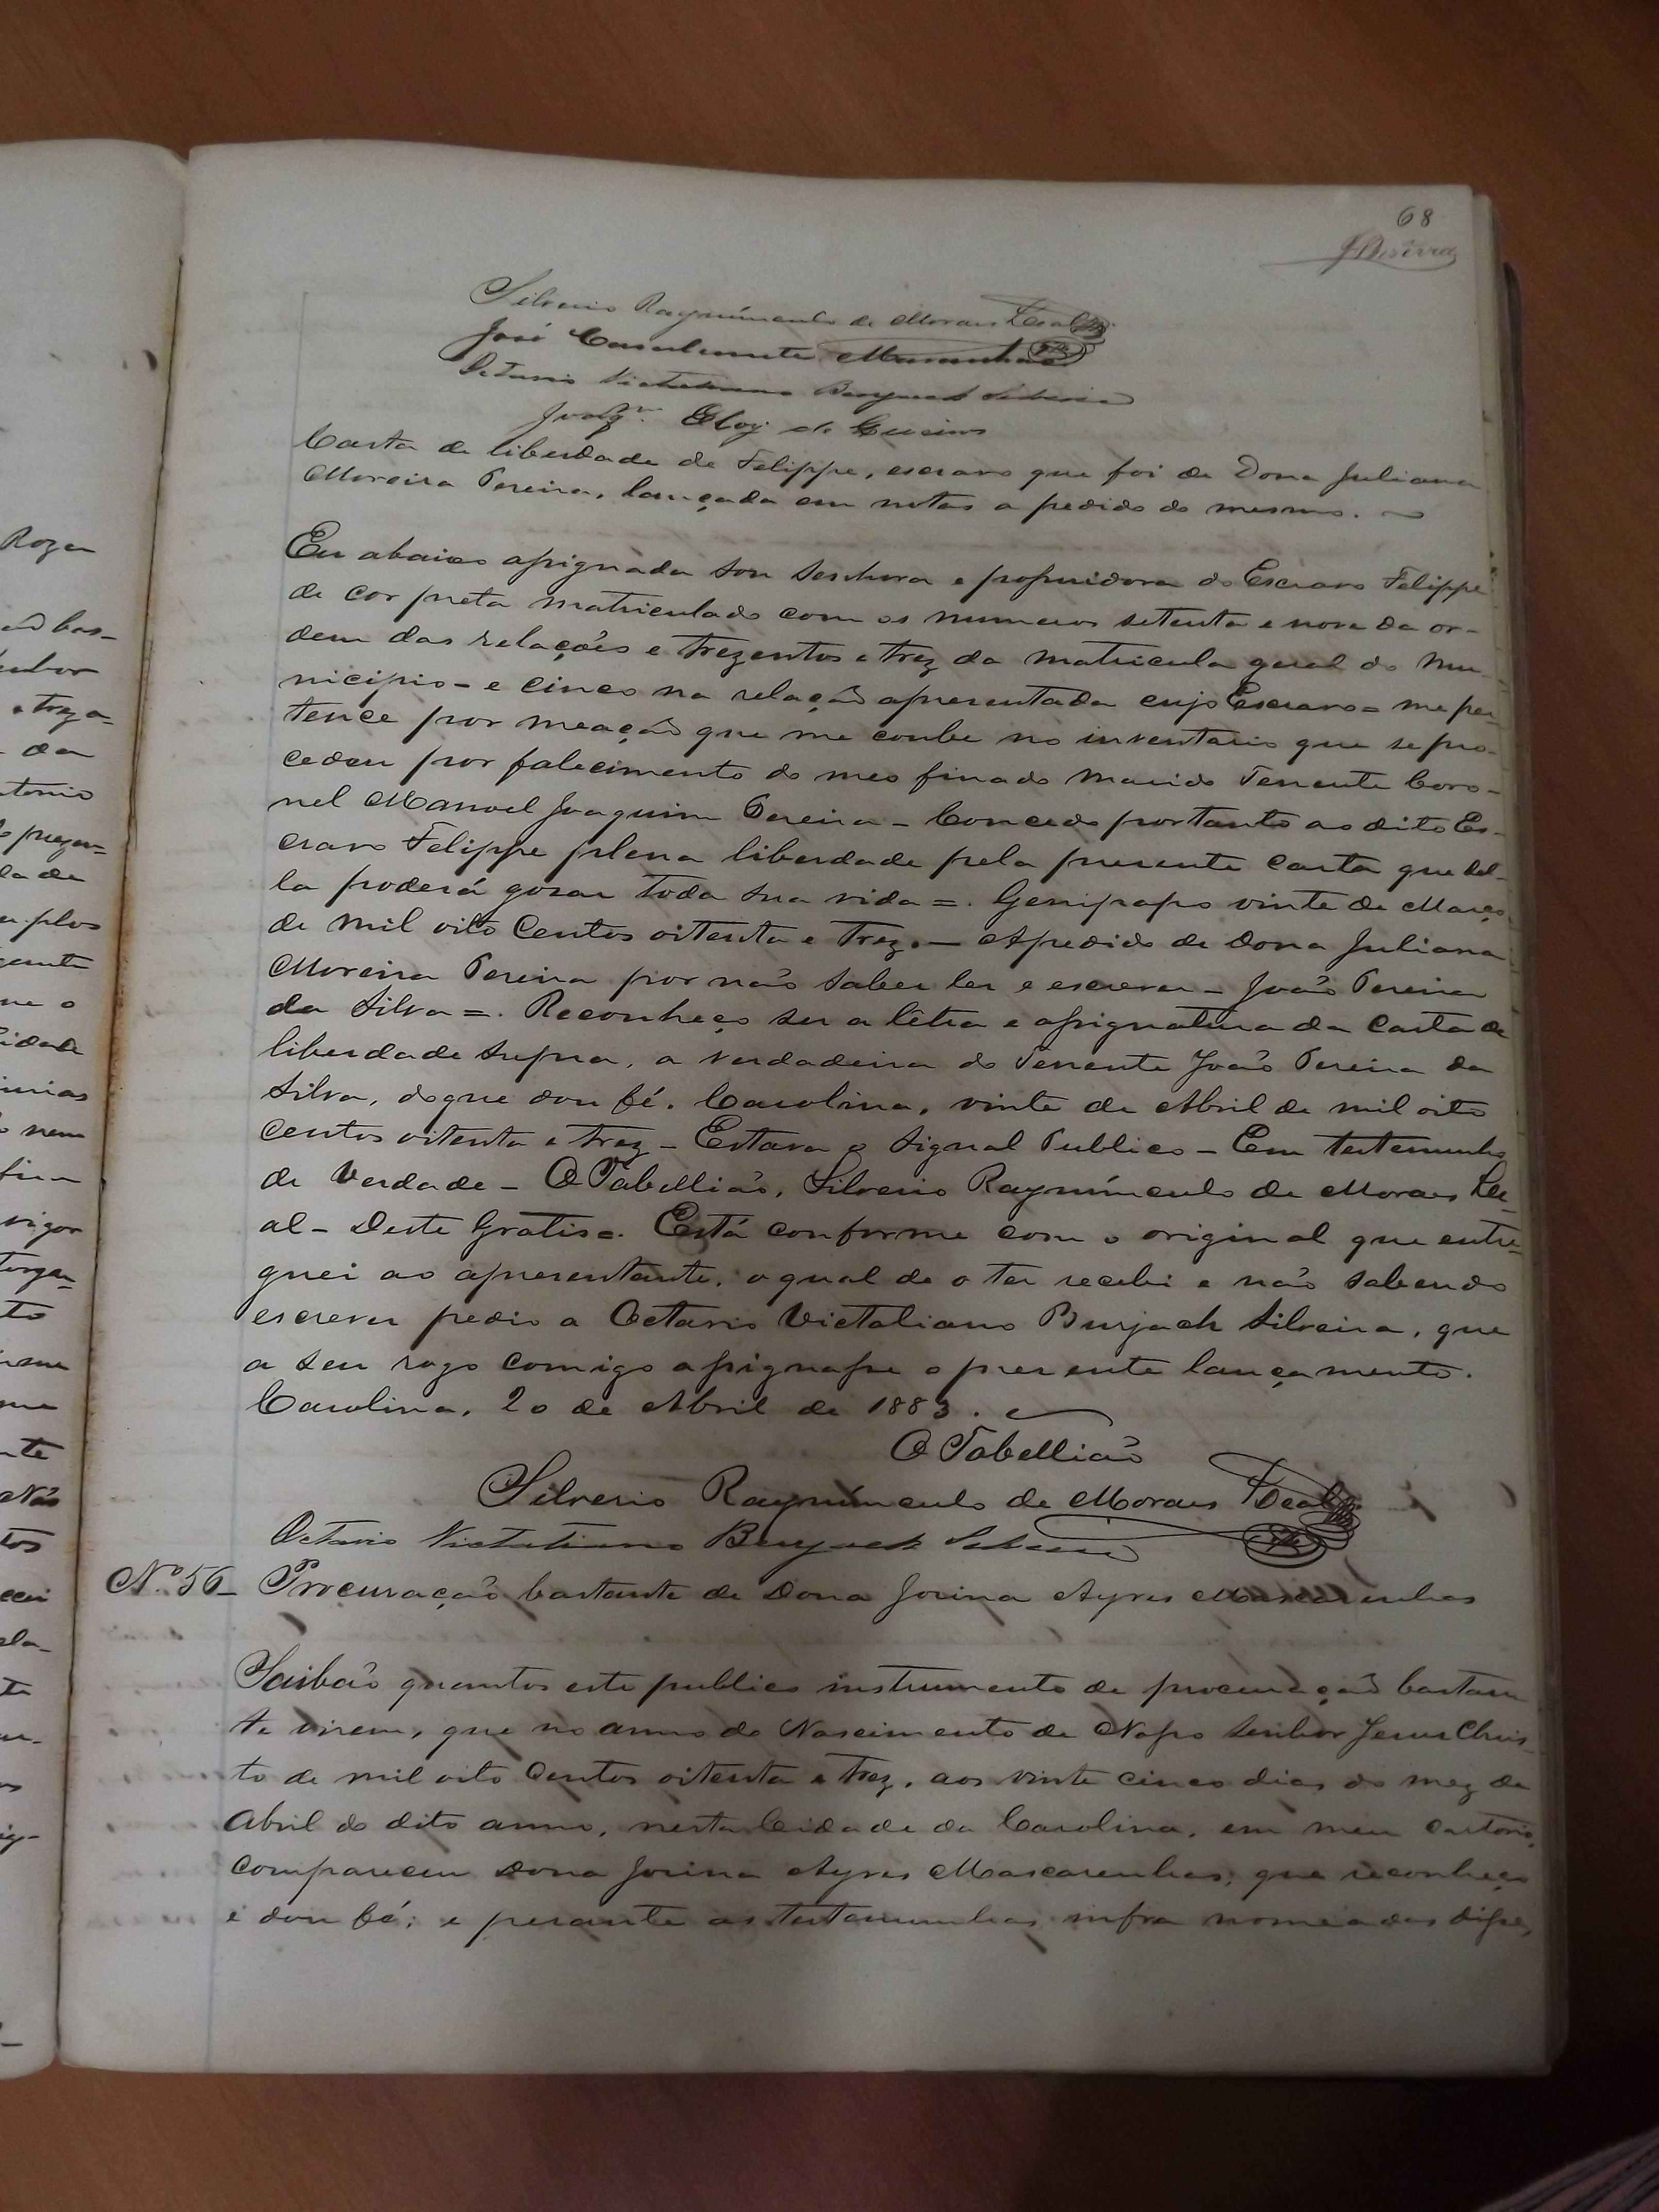 68
Silverio Raymúmculo de Moraes Leal
José Cavalcante Maranhão
Octavio Victaliano Burjack Silveira
Joaqm. Eloy de
Carta de liberdade de Felippe, escravo que foi de Dona Juliana
Moreira Pereira, lançada em notas a pedido do mesmo.
Eu abaixo assignada sou Senhora e possuidora do Escravo Felippe
de cor preta matriculado com os numeros setenta e nove da or-
dem das relações e trezentos e trez da matricula geral do Mu-
nicipio - e cinco na relação apresentada cujo Escravo = me per-
tence por meação que me coube no inventario que se pro-
cedeu por falecimento do meo finado marido Tenente Coro-
nel Manoel Joaquim Pereira - Concedo portanto ao dito Es-
cravo Felippe plena liberdade pela presente Carta que del-
la poderá gosar toda sua vida =. Genipapo vinte de Março
de mil oito Centos oitenta e Trez. — Apedido de Dona Juliana
Moreira Pereira por não saber ler e escrever - João Pereira
da Silva =. Reconheço ser a lêtra e assignatura da Carta de
liberdade supra, a verdadeira do Tenente João Pereira da
Silva, do que dou fé. Carolina, vinte de Abril de mil oito
Centos oitenta e trez - Estava o Signal Publico - Em testemunho
de Verdade - O Tabellião, Silverio Raymúmculo de Moraes Le-
al - Deste Gratis =. Está conforme com o original que entre-
guei ao apresentante, o qual de o ter recebi e não sabendo
escrever pedio a Octavio Victaliano Burjack Silveira, que
a seu rogo comigo assignasse o presente lançamento.
Carolina, 20 de Abril de 1883.
O Tabellião
Silverio Raymúmculo de Moraes Leal
Octavio Victaliano Burjack Silveira
No. 56 - Procuração bastante de Dona Jovina Ayres Mascarenhas
Saibão quantos este publico instrumento de procuração bastan
te virem, que no anno do Nascimento de Nosso Senhor Jesus Chris-
to de mil oito Centos oitenta e Trez, aos vinte cinco dias do mez de
Abril do dito anno, nesta Cidade da Carolina, em meu Cartorio,
Compareceu Dona Jovina Ayres Mascarenhas, que reconheço
e dou fé; e perante as testemunhas infra nomeadas disse,